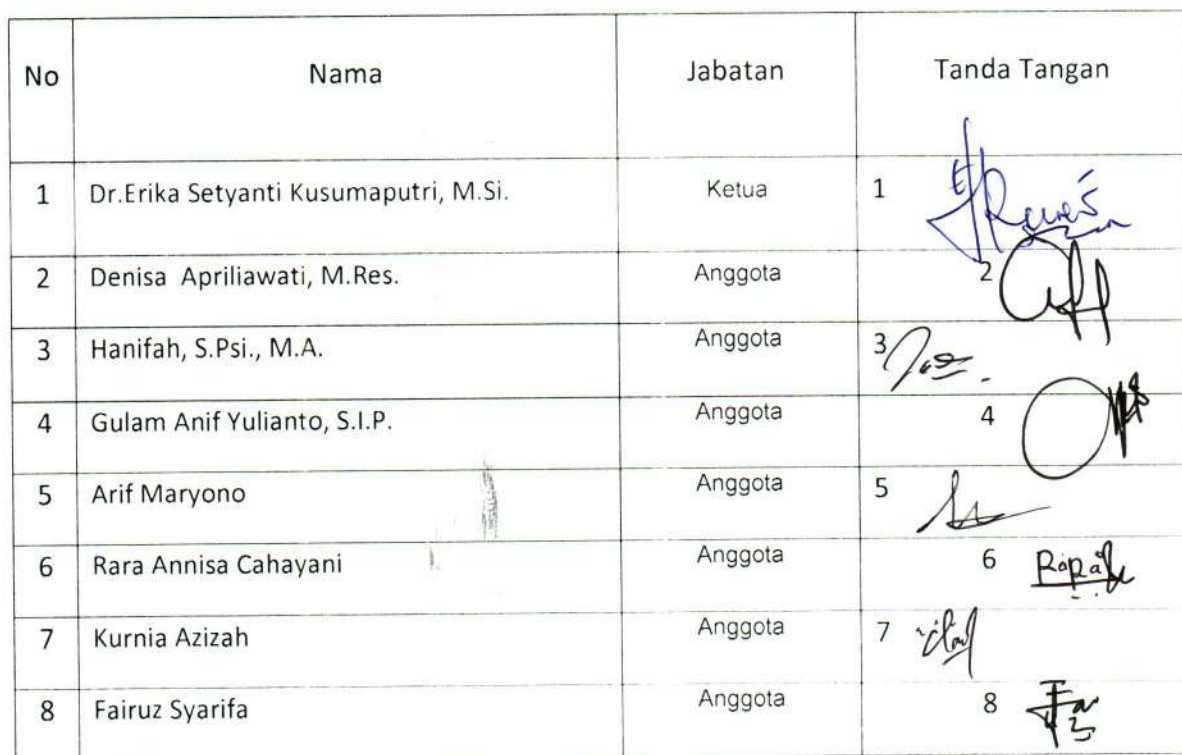 No Nama Jabatan Tanda Tangan
1 Dr.Erika Setyanti Kusumaputri, M.Si. Ketua 1
2 Denisa Apriliawati, M.Res. Anggota 2
3 Hanifah, S.Psi., M.A. Anggota 3
4 Gulam Anif Yulianto, S.I.P. Anggota 4
5 Arif Maryono Anggota 5
6 Rara Annisa Cahayani Anggota 6
7 Kurnia Azizah Anggota 7
8 Fairuz Syarifa Anggota 8